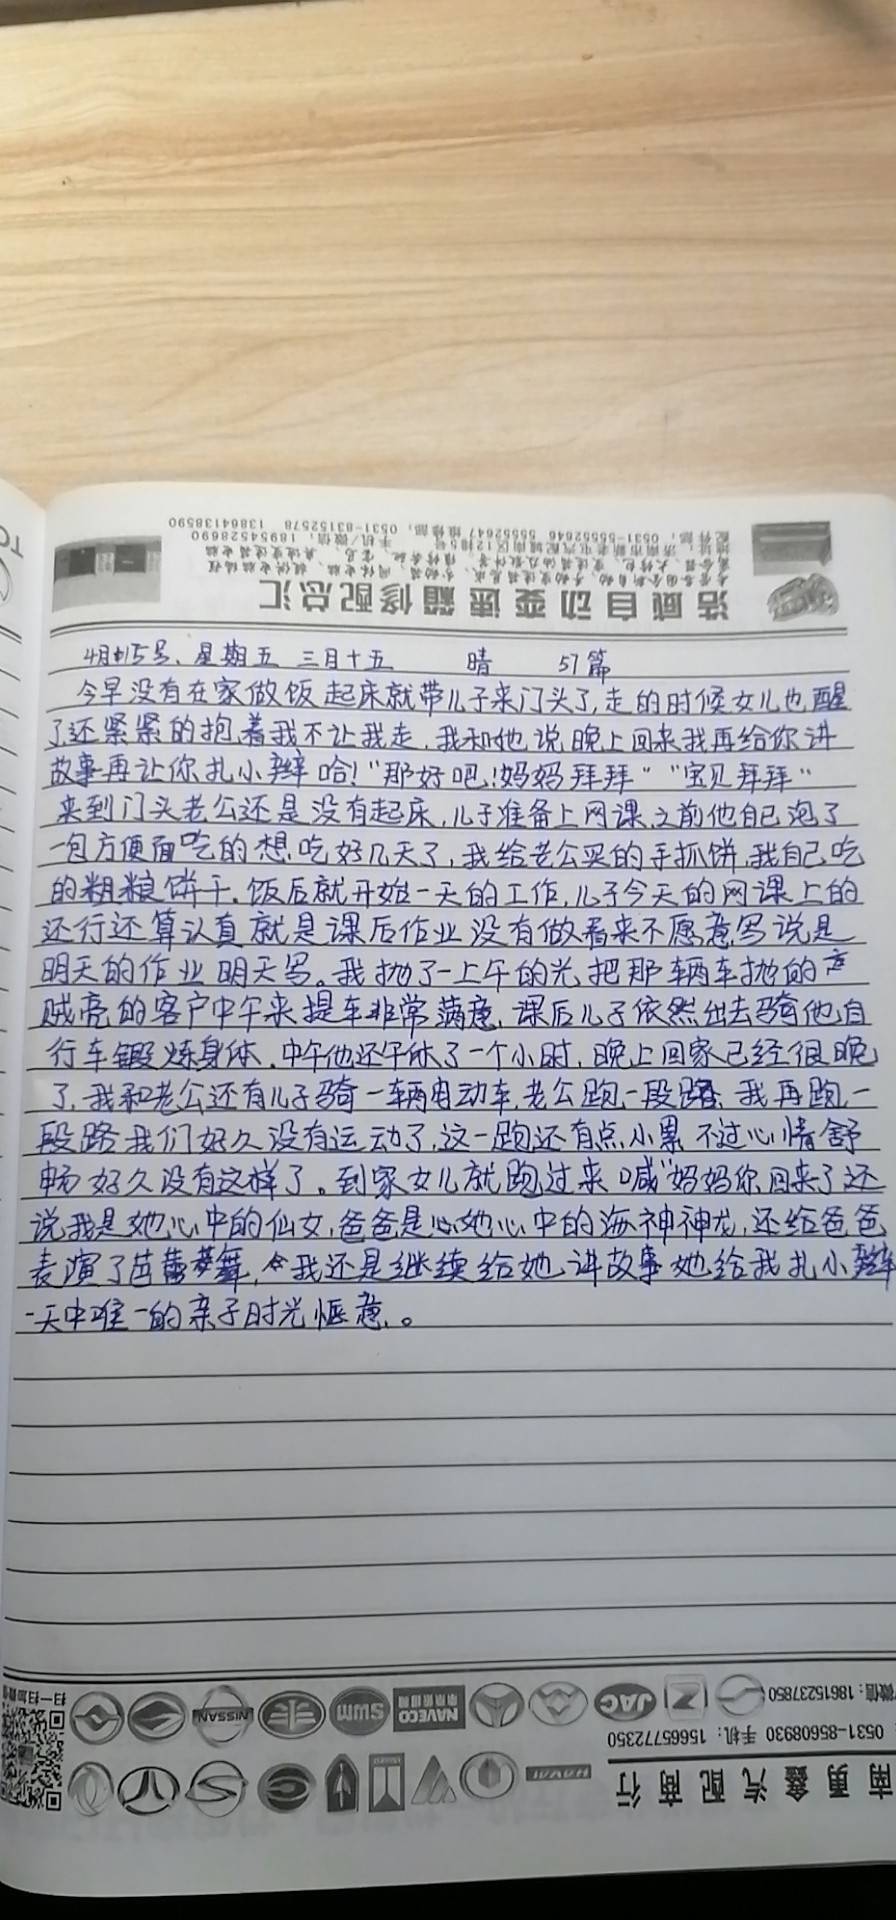 浩威自动变速箱修配总汇
4月15号、星期五 三月十五 晴 57篇
今早没有在家做饭起床就带儿子来门头了,走的时候女儿也醒
了还紧紧的抱着我不让我走.我和她说,晚上回来我再给你讲
故事再让你扎小辫哈!“那好吧!妈妈拜拜”“宝贝拜拜”
来到门头老公还是没有起床,儿子准备上网课之前他自己泡了
一包方便面吃的想吃好几天了,我给老公买的手抓饼,我自己吃
的粗粮饼干.饭后就开始一天的工作,儿子今天的网课上的
还行还算认真就是课后作业没有做看来不愿意写说是
明天的作业明天写。我抛了一上午的光把那辆车抛的
贼亮的客户中午来提车非常满意,课后儿子依然出去骑他自
行车锻炼身体.中午他还午休了一个小时,晚上回家已经很晚
了,我和老公还有儿子骑一辆电动车,老公跑一段路,我再跑一
段路我们好久没有运动了,这一跑还有点小累不过心情舒
畅好久没有这样了。到家女儿就跑过来喊“妈妈你回来了还
说我是她心中的仙女,爸爸是她心中的海神神龙,还给爸爸
表演了芭蕾舞,我还是继续给她讲故事她给我扎小辫
一天中唯一的亲子时光惬意。
南勇鑫汽配商行
0531-85608930 手机：15665772350
微信：18615237850
HAVAL
JAC
NAVECO
SWM
NISSAN
扫一扫加微信